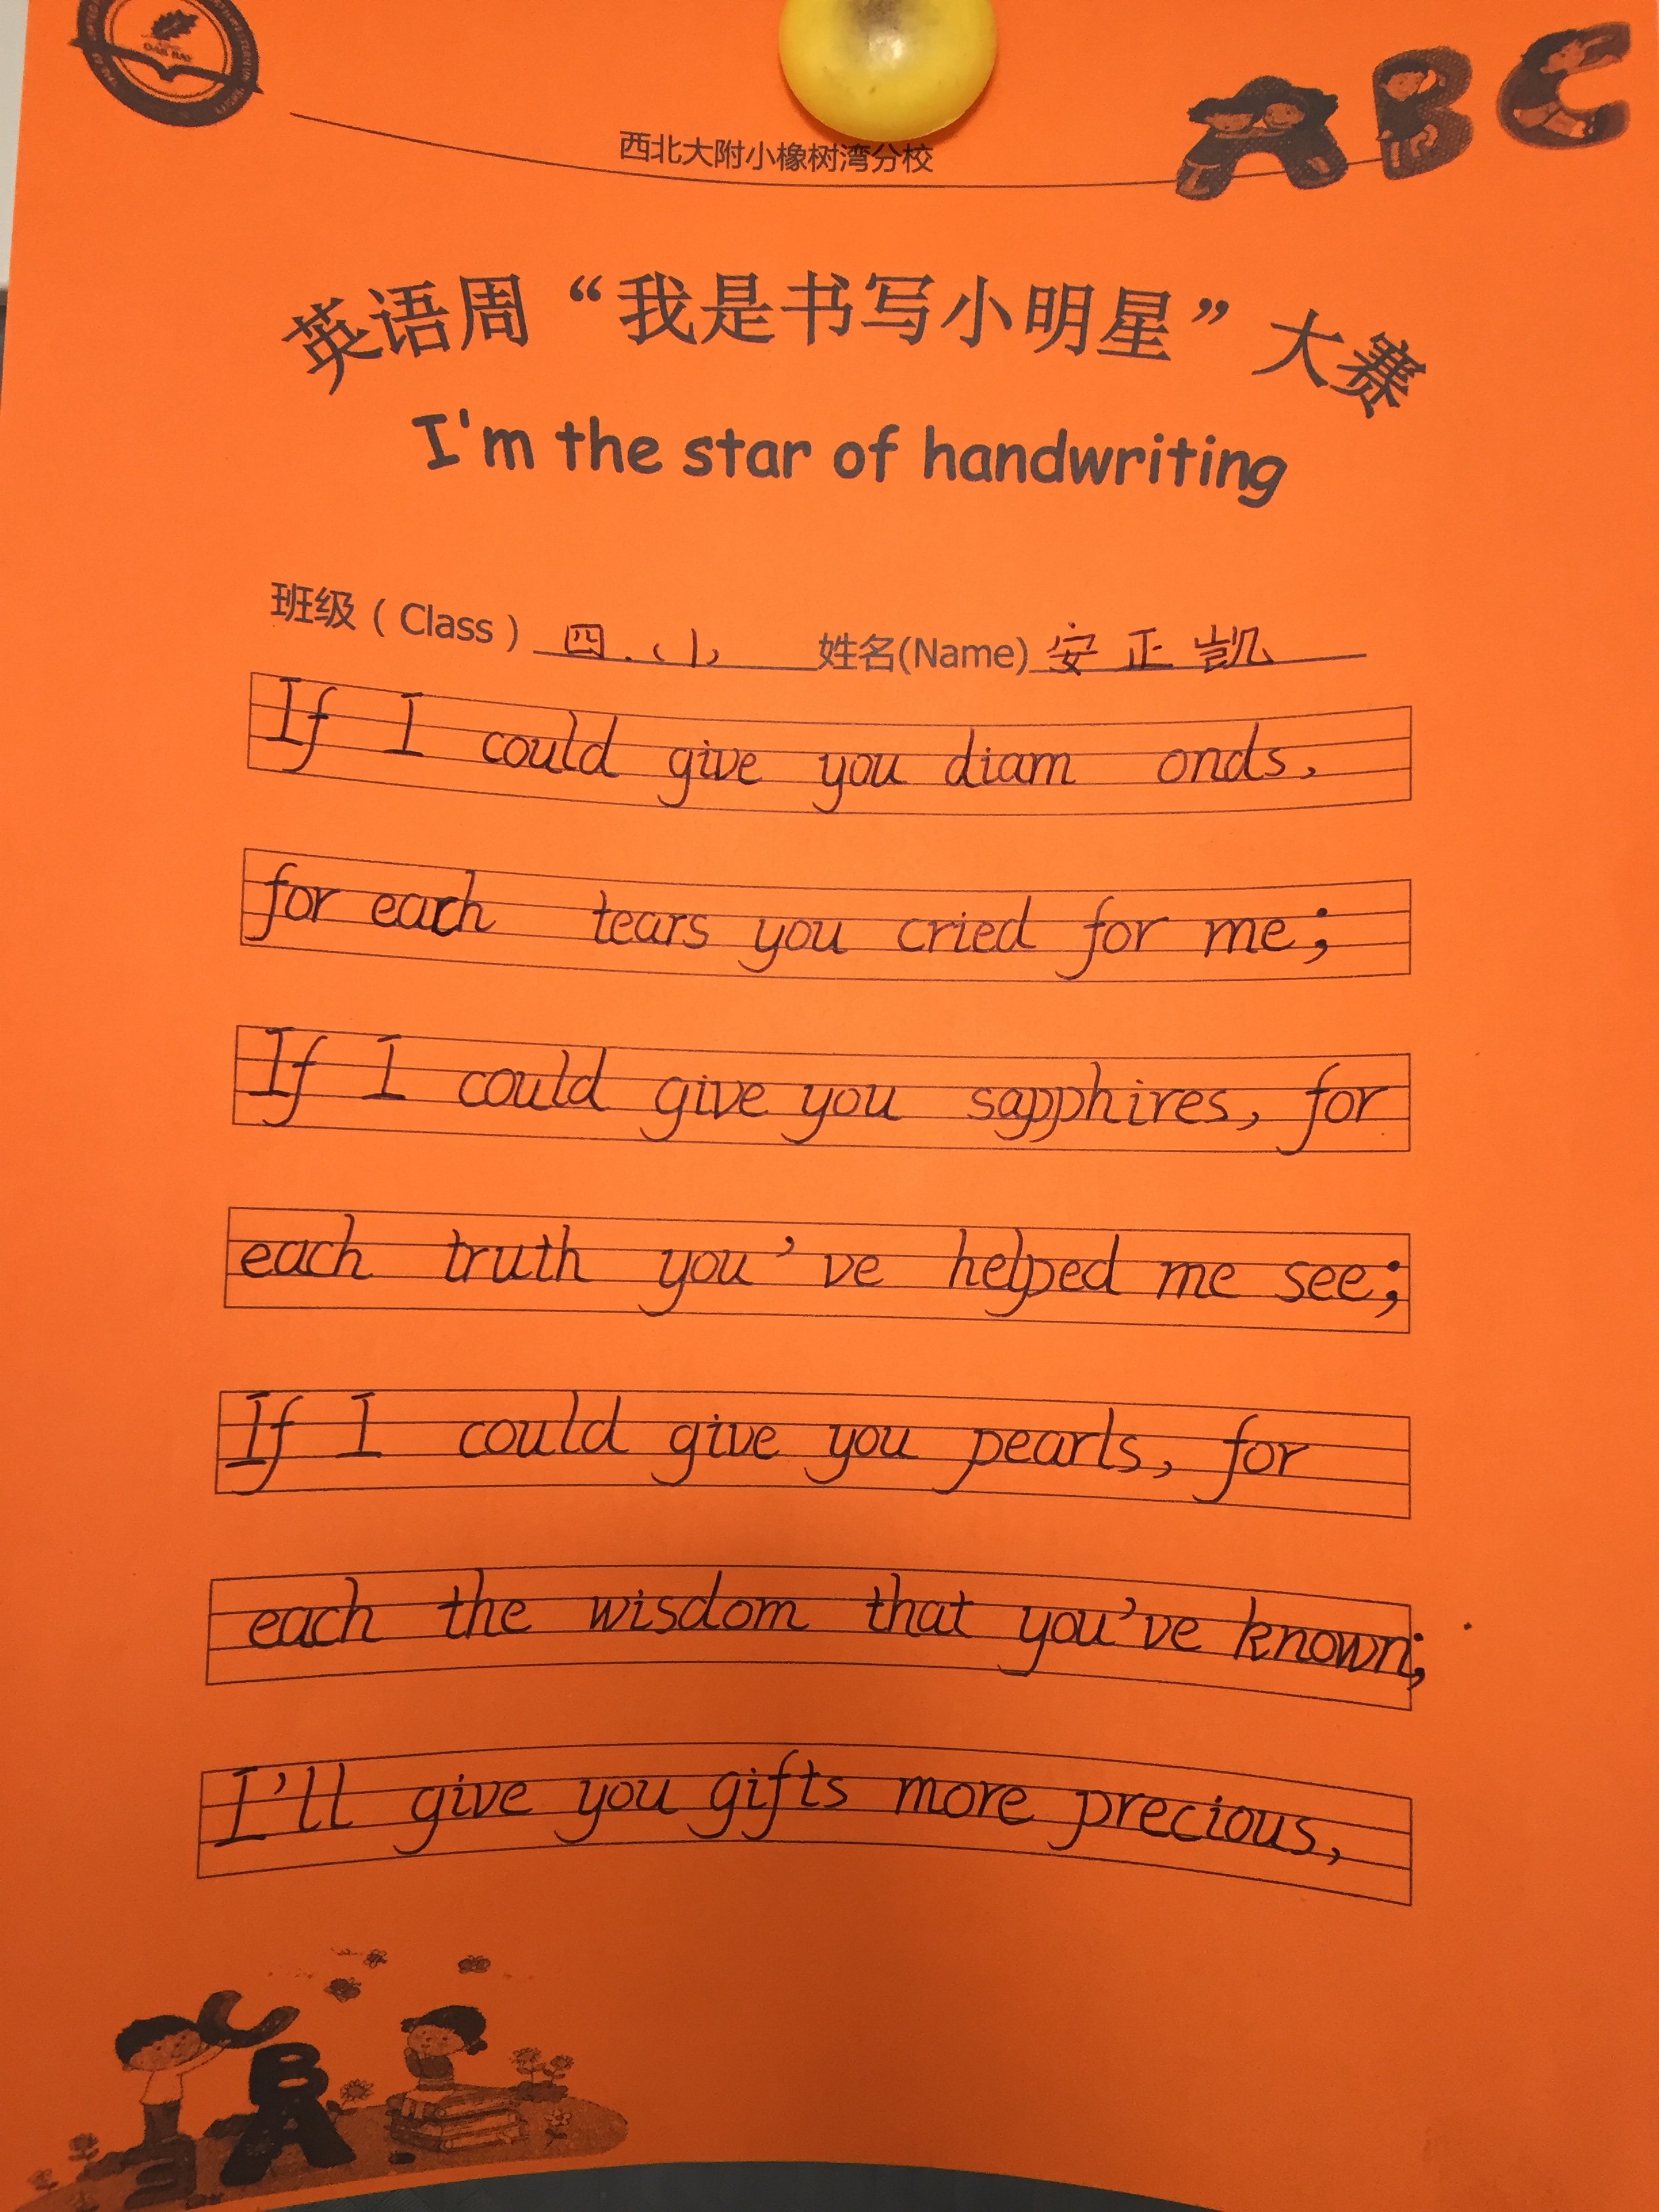 OAK BAY
ABC
西北大附小橡树湾分校
英语周“我是书写小明星”大赛
I'm the star of handwriting
班级（Class）四.(1) 姓名(Name) 安正凯
If I could give you diam onds,
for each tears you cried for me;
If I could give you sapphires, for
each truth you've helped me see;
If I could give you pearls, for
each the wisdom that you've known;
I'll give you gifts more precious,